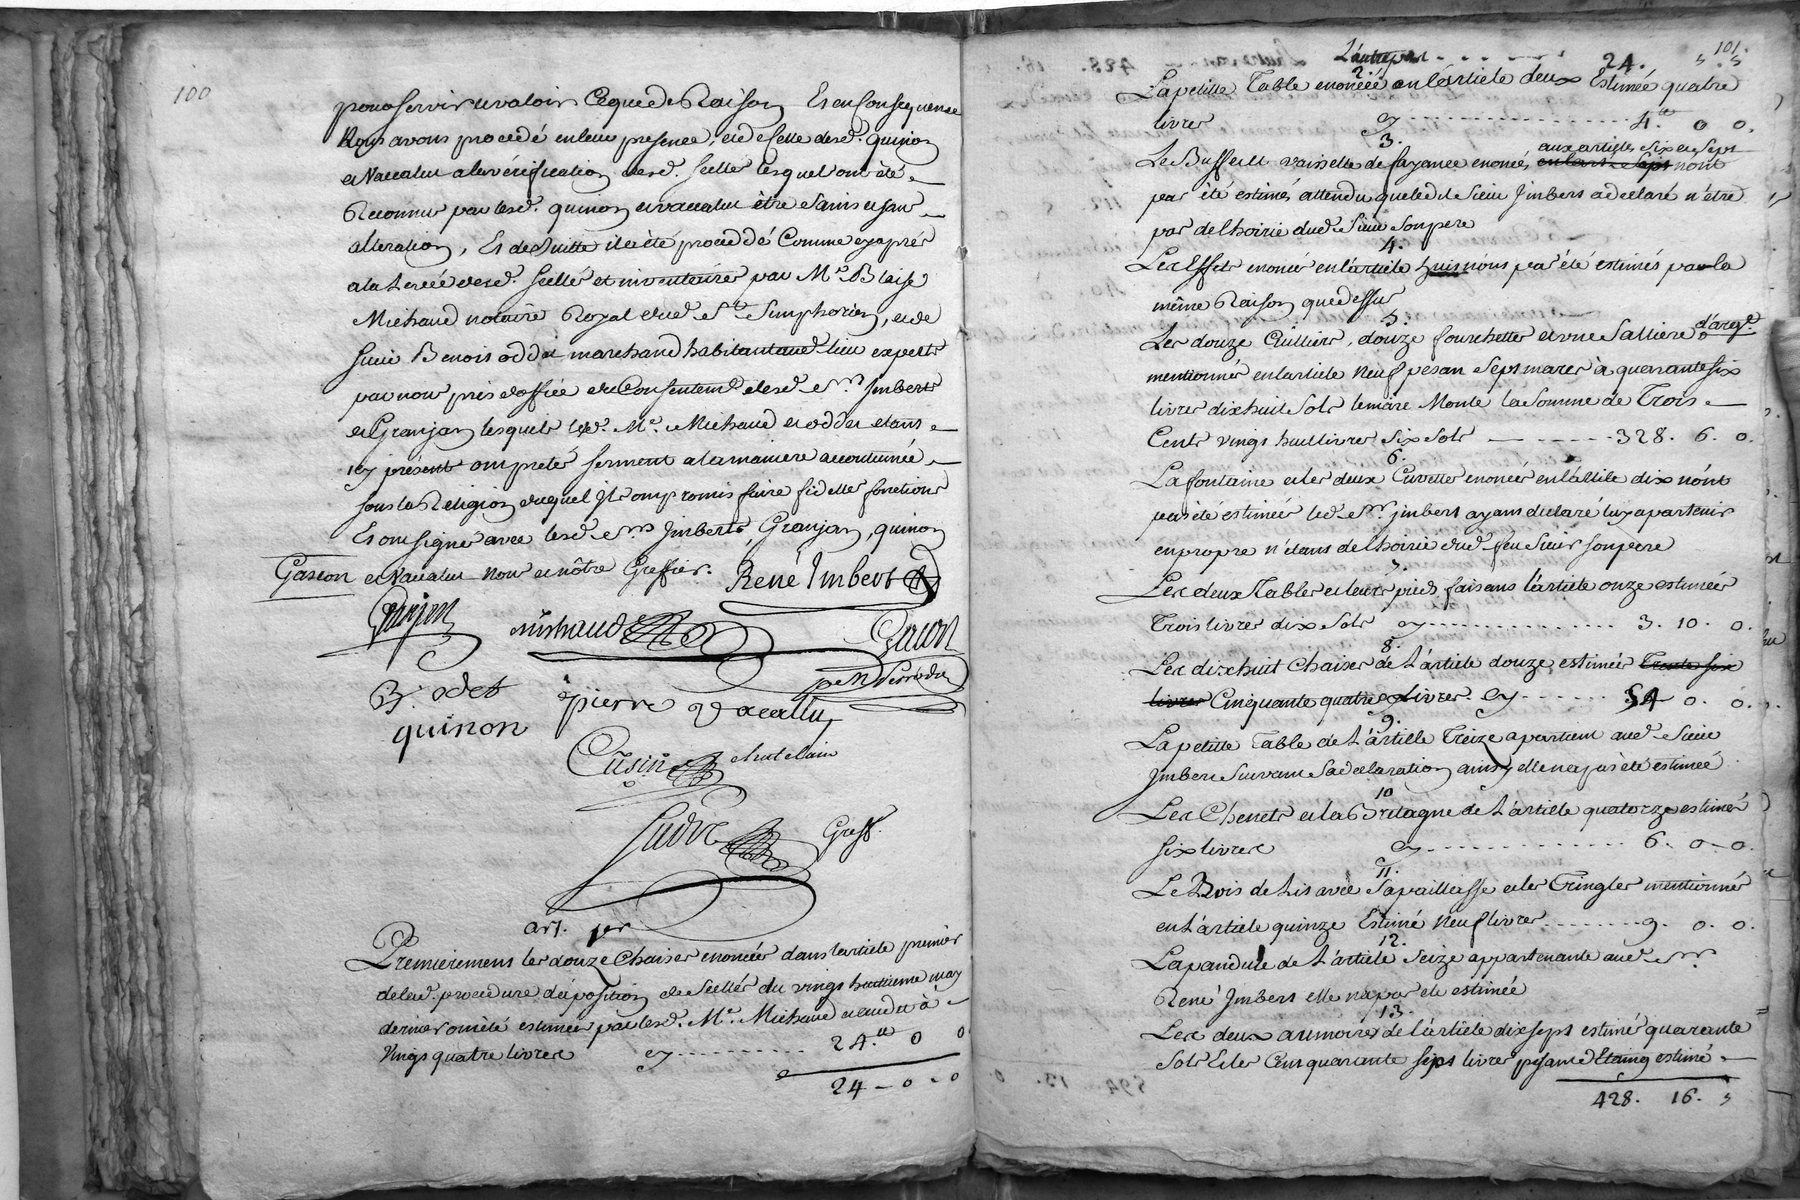 100
pour servir et valoir ce que de Raison Et en Consequence
Nous avons procedé en leur presence, et de celle desd. quinon
et Vacalut a la vérification desd. scellé lesquel ont été
Reconnus par lesd. quinon et vacalut être Sains et sans
alteration, Et de Suitte il a été proceddé Comme cy aprés
a la Levée desd. scellé et inventairer par Me Blaise
Michaud notaire Royal dud. St Simphorien, et de
sieur Benois oddet marchand habitant aud. lieu experts
par nous pris d'office du Consentemt desd. srs Imbert
et Granjan lesquels sd. Me Michaud et oddet etans
icy présent ont preté serment a la maniere accoutumée
sous la Religion duquel Ils ont promis faire fidelles fonctions
Et ont signé avec lesd. srs Imbert, Granjan, quinon
Gascon et Vacalut Nous et nôtre Greffier. René Imbert
Granjan michaud Gacon
B. odet pierre vacallu
quinon
Cusin chatelain
Greff.
art. 1er
Premierement les douze Chaises enoncées dans l'article premier
de lad. procedure d'aposition de Scellés du vingt huitieme may
dernier ont été estimées par lesd. Me Michaud et audet à
Vingt quatre livres cy 24.tt 0 0
24 - 0 - 0
101.
24.
2.
La petitte Table enoncée en l'article deux Estimée quatre
livres cy 4.tt 0 0.
3.
aux articles six et sept
Le Buffet et vaisselle de fayance enoncé, en l'art. Sept nont
pas été estimés attendu que led. Sieur Imbert a declaré n'etre
pas de l'hoirie dud. Sieur Son pere
4.
Les Effets enoncés en l'article huit nons pas été estimés par la
même Raison que dessus
5.
Les douze Cuilliers, douze fourchettes et une Salliere d'argt.
mentionnés en l'article Neuf pesan Sept marcs à quarante six
livres dix huit Sols le marc Monte la Somme de Trois
Cents vingt huit livres Six Sols 328. 6. 0.
6.
La fontaine et les deux Cuvettes enoncés en l'article dix nónt
pas été estimées led. Sr. Imbert ayans declaré luy apartenir
en propre n'etans de l'hoirie dud. feu Sieur Son pere
7.
Les deux Tables et leurs pieds faisans l'article onze estimées
Trois livres dix Sols cy 3. 10. 0.
8.
Les dix huit Chaises de L'article douze estimées Trente six
livres Cinquante quatre livres. Cy 54 0. 0.
9.
La petitte Table de L'article Treize apartient aud. Sieur
Imbert Suivant Sa declaration ainsy elle n'a pas été estimée
10
Les Chenets et la Bretagne de L'article quatorze estimés
Six livres cy 6. 0 - 0.
11.
Le Bois de Lis avec Sa paillasse et les Tringles mentionnés
en L'article quinze Estimé Neuf livres 9. 0. 0.
12.
La pandule de L'article Seize appartenante aud. Sr.
René Imbert elle n'a pas été estimée
13.
Les deux armoires de l'article dix sept estimé quarante
Sols Et les Cent quarante sept livres pesant d'Etaing estimé
428. 16.